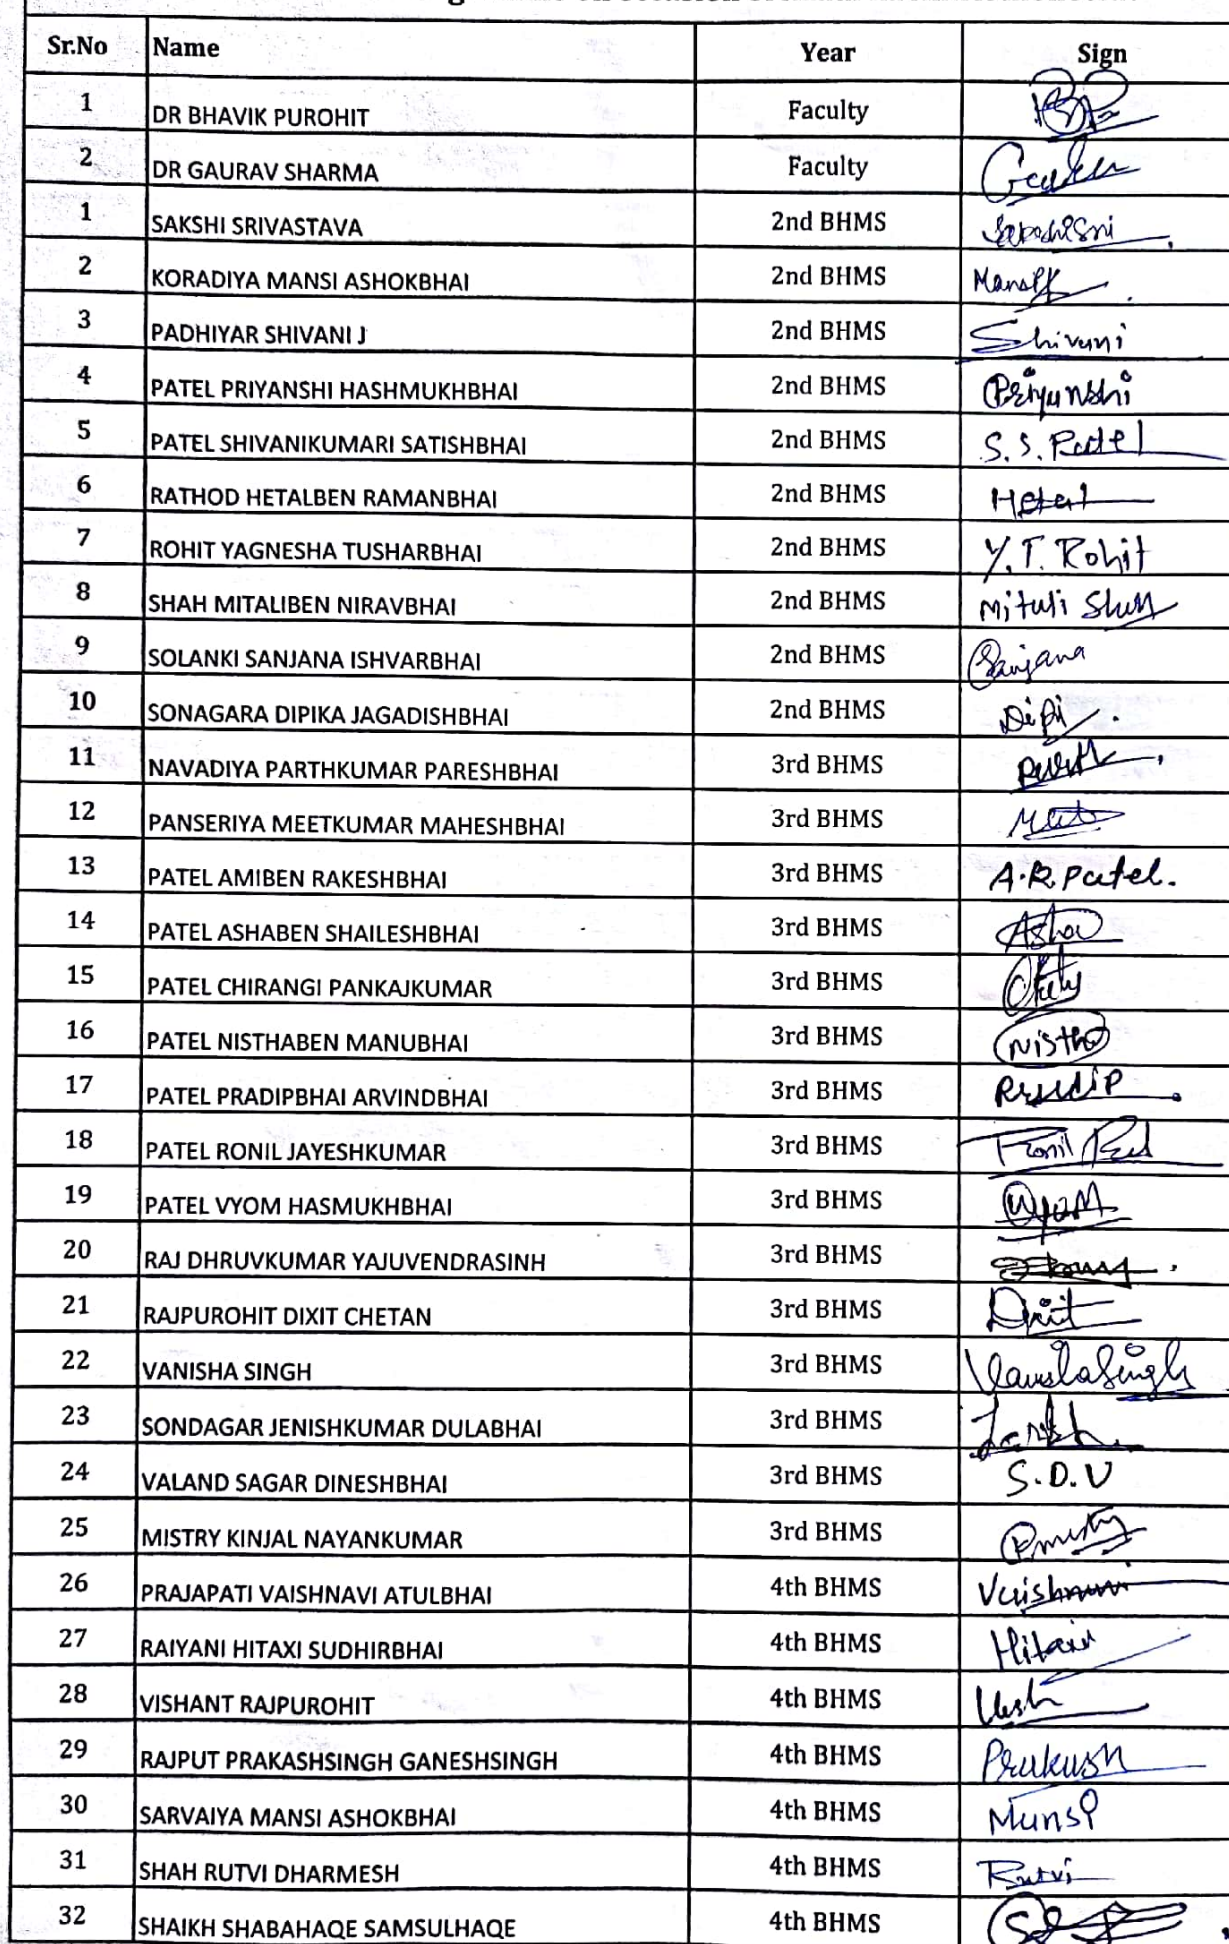 Sr.No Name Year Sign
1 DR BHAVIK PUROHIT Faculty
2 DR GAURAV SHARMA Faculty
1 SAKSHI SRIVASTAVA 2nd BHMS
2 KORADIYA MANSI ASHOKBHAI 2nd BHMS
3 PADHIYAR SHIVANI J 2nd BHMS Shivani
4 PATEL PRIYANSHI HASHMUKHBHAI 2nd BHMS Priyanshi
5 PATEL SHIVANIKUMARI SATISHBHAI 2nd BHMS S. S. Patel
6 RATHOD HETALBEN RAMANBHAI 2nd BHMS Hetal
7 ROHIT YAGNESHA TUSHARBHAI 2nd BHMS Y. T. Rohit
8 SHAH MITALIBEN NIRAVBHAI 2nd BHMS Mitali Shah
9 SOLANKI SANJANA ISHVARBHAI 2nd BHMS Sanjana
10 SONAGARA DIPIKA JAGADISHBHAI 2nd BHMS Dipi
11 NAVADIYA PARTHKUMAR PARESHBHAI 3rd BHMS Parth
12 PANSERIYA MEETKUMAR MAHESHBHAI 3rd BHMS Meet
13 PATEL AMIBEN RAKESHBHAI 3rd BHMS A.R. Patel.
14 PATEL ASHABEN SHAILESHBHAI 3rd BHMS Asha
15 PATEL CHIRANGI PANKAJKUMAR 3rd BHMS
16 PATEL NISTHABEN MANUBHAI 3rd BHMS Nistha
17 PATEL PRADIPBHAI ARVINDBHAI 3rd BHMS Pradip
18 PATEL RONIL JAYESHKUMAR 3rd BHMS Ronil
19 PATEL VYOM HASMUKHBHAI 3rd BHMS Vyom
20 RAJ DHRUVKUMAR YAJUVENDRASINH 3rd BHMS
21 RAJPUROHIT DIXIT CHETAN 3rd BHMS Dixit
22 VANISHA SINGH 3rd BHMS Vanisha Singh
23 SONDAGAR JENISHKUMAR DULABHAI 3rd BHMS
24 VALAND SAGAR DINESHBHAI 3rd BHMS S.D.V
25 MISTRY KINJAL NAYANKUMAR 3rd BHMS
26 PRAJAPATI VAISHNAVI ATULBHAI 4th BHMS Vaishnavi
27 RAIYANI HITAXI SUDHIRBHAI 4th BHMS Hitaxi
28 VISHANT RAJPUROHIT 4th BHMS
29 RAJPUT PRAKASHSINGH GANESHSINGH 4th BHMS Prakash
30 SARVAIYA MANSI ASHOKBHAI 4th BHMS Mansi
31 SHAH RUTVI DHARMESH 4th BHMS Rutvi
32 SHAIKH SHABAHAQE SAMSULHAQE 4th BHMS